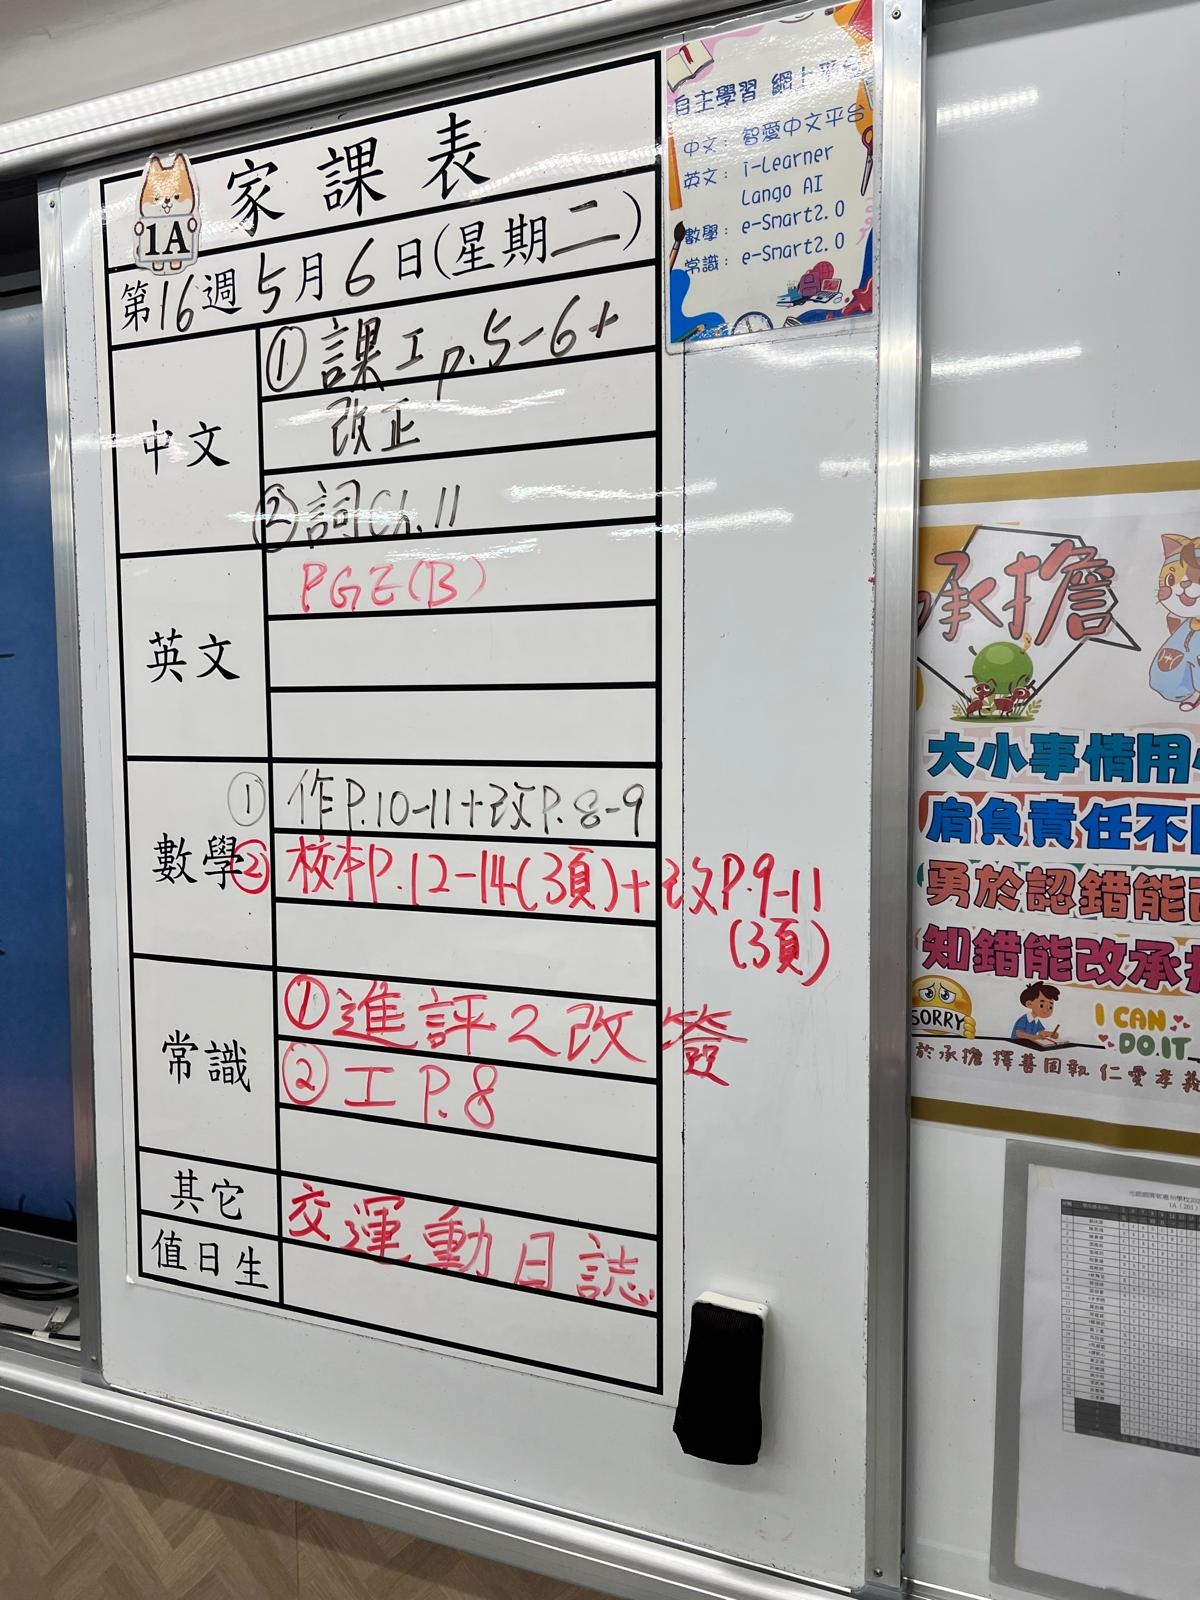 家課表
1A
第16週5月6日(星期二)
中文
①課工p.5-6+
改正
②詞Ch.11
英文
PGE(B)
數學
①作P.10-11+改P.8-9
②校本P.12-14(3頁)+改P.9-11
(3頁)
常識
①進評2改 簽
②工P.8
其它
交運動日誌
值日生
自主學習 網上平台
中文：智愛中文平台
英文：i-Learner
Lango AI
數學：e-Smart2.0
常識：e-Smart2.0
承擔
大小事情用
肩負責任不
勇於認錯能
知錯能改承
SORRY
I CAN
DO IT
於承擔 擇善固執 仁愛孝